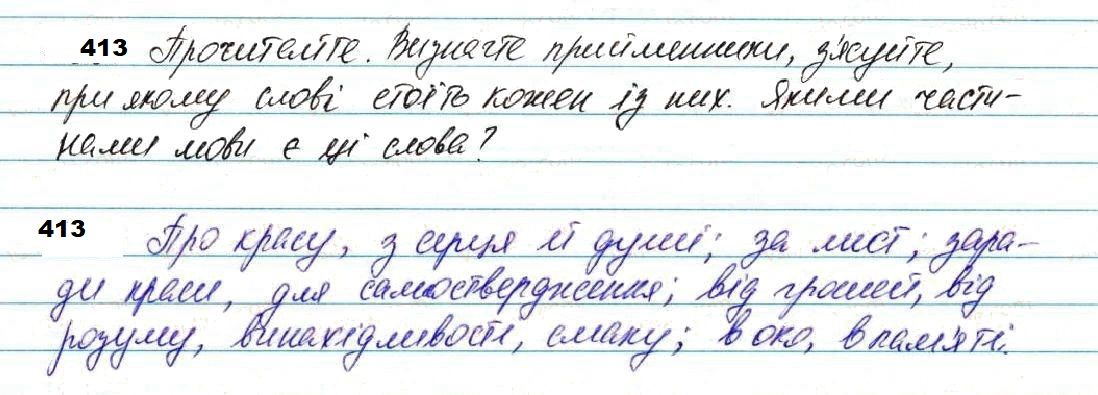 413 Прочитайте. Визначте прийменники, з'ясуйте,
при якому слові стоїть кожен із них. Якими части-
нами мови є ці слова?
413 Про красу, з серця й душі; за лист; зара-
ди краси, для самоствердження; від грошей, від
розуму, винахідливості, смаку; в око, в пам'яті.